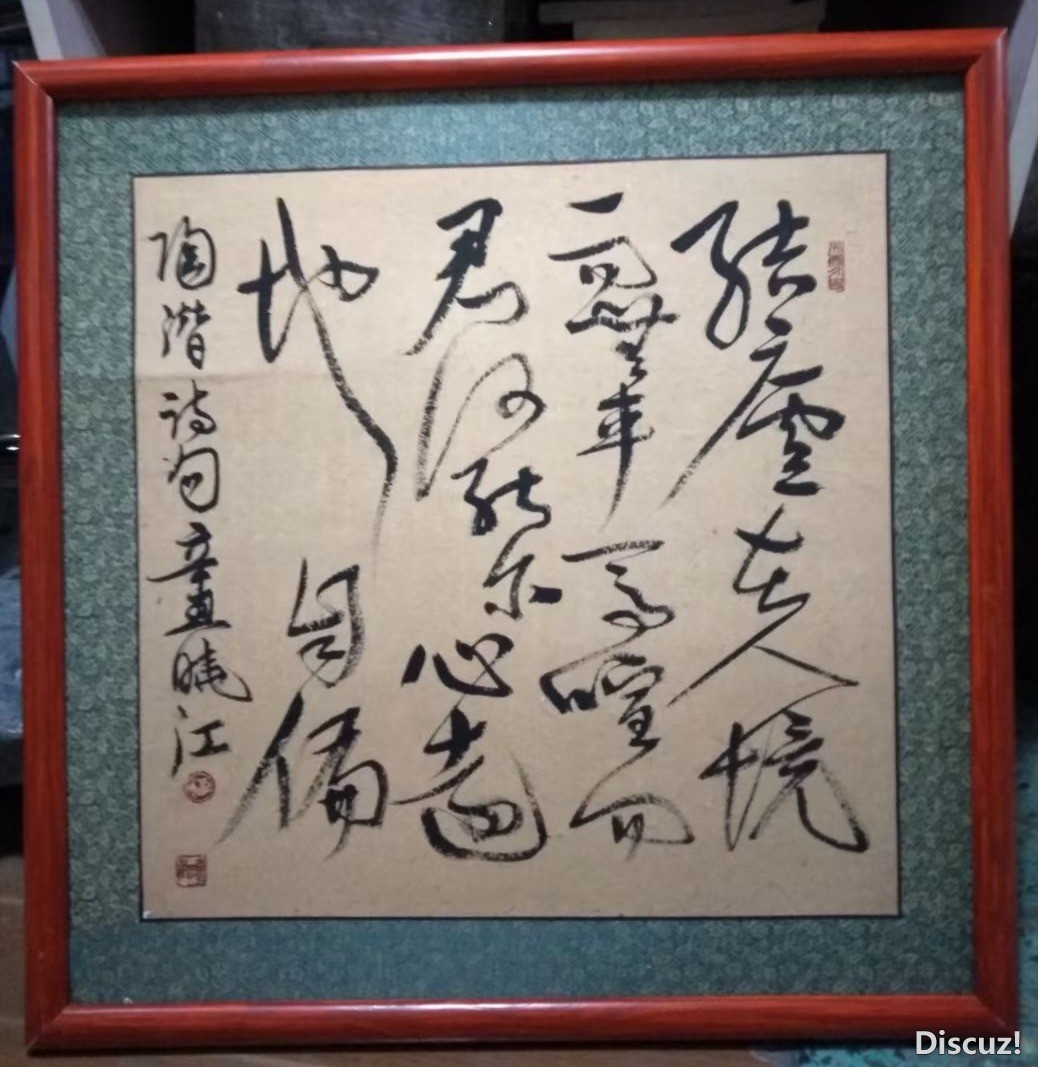 結廬在人境
而無車馬喧問
君何能尔心遠
地自偏
陶潜诗句辛丑曉江
Discuz!